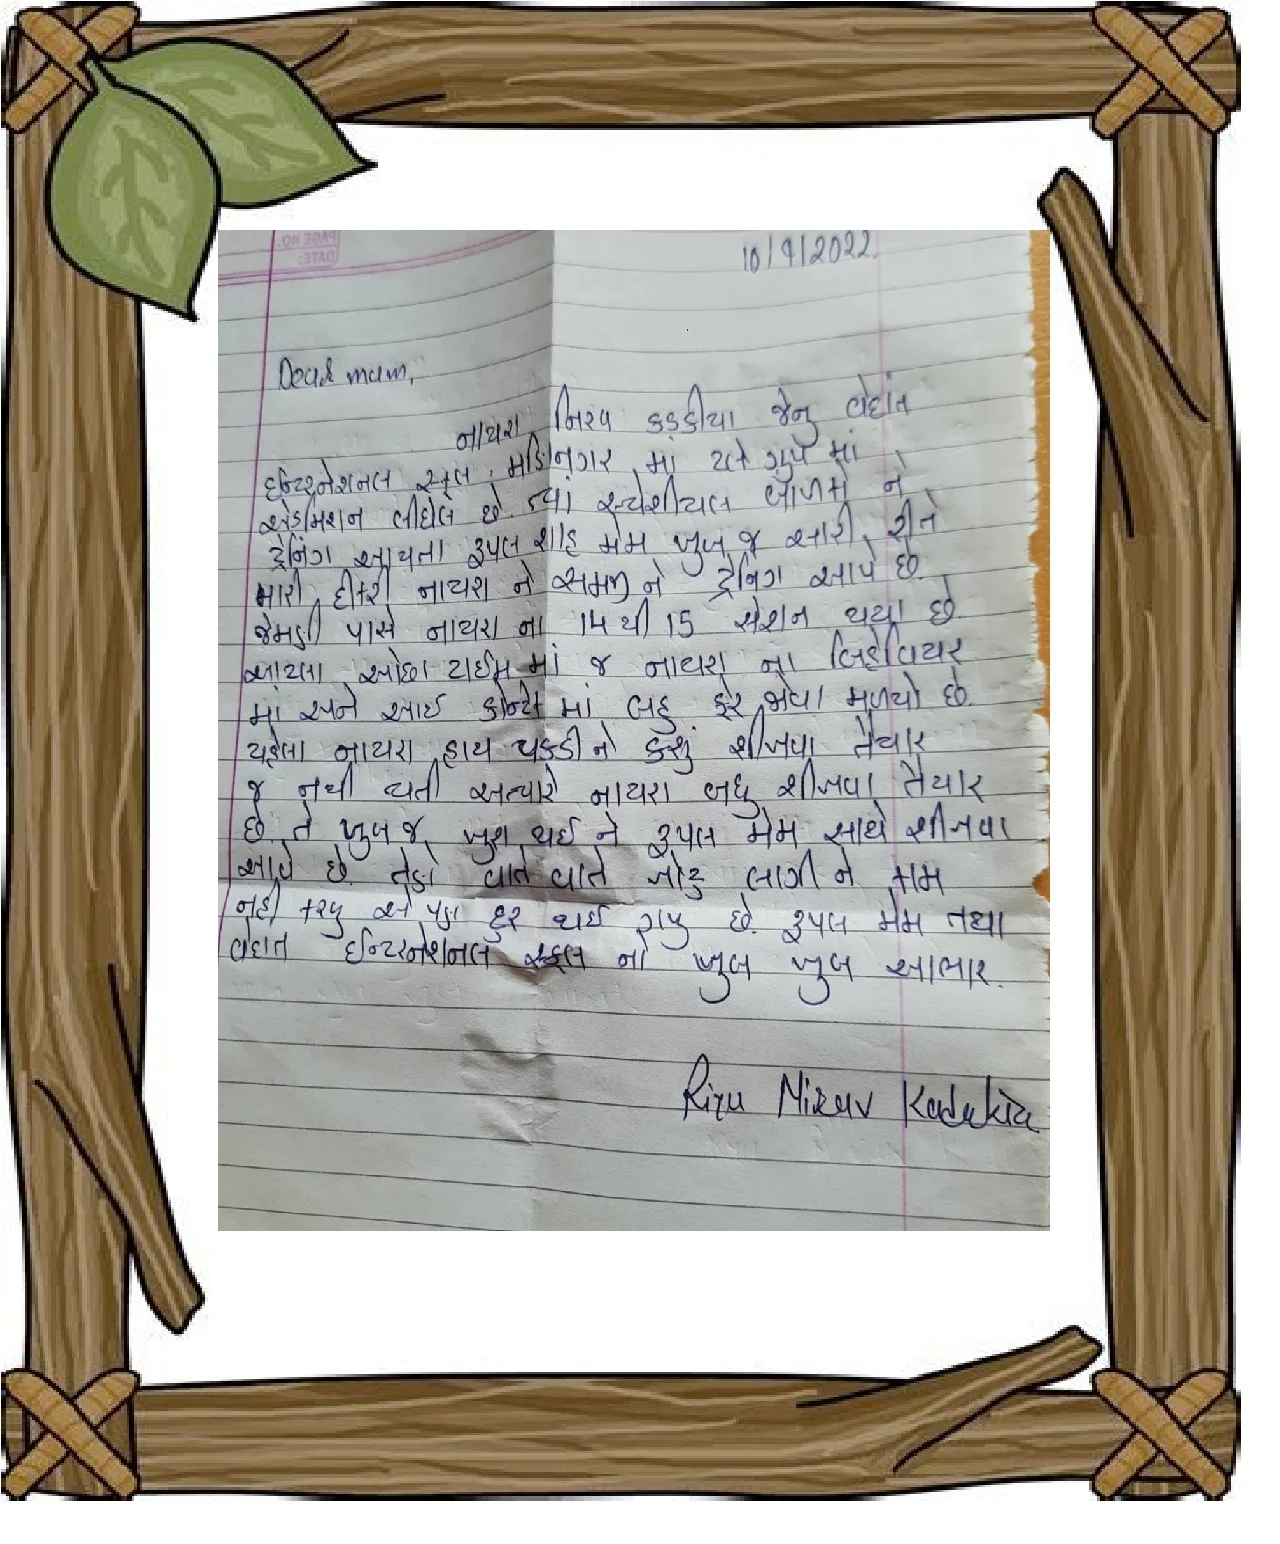 PAGE NO.
DATE:
10/9/2022.
Dear mam,
નાયરા નિરવ કડકીયા જેનુ વેદાંત
ઇન્ટરનેશનલ સ્કુલ, મણિનગર માં પ્લે ગ્રુપ માં
એડમિશન લીધેલ છે જ્યાં સ્પેશીયલ બાળકો ને
ટ્રેનિંગ આપતા રૂપલ શાહ મેમ ખુબ જ સારી રીતે
મારી દીકરી નાયરા ને સમજી ને ટ્રેનિંગ આપે છે.
જેમની પાસે નાયરા ના 14 થી 15 સેશન થયા છે
આટલા ઓછા ટાઈમ માં જ નાયરા ના બિહેવિયર
માં અને આઇ કોન્ટેક માં બહુ ફેર જોવા મળ્યો છે.
પહેલા નાયરા હાથ પકડી ને કશું શીખવા તૈયાર
જ નથી થતી અત્યારે નાયરા બધુ શીખવા તૈયાર
છે. તે ખુબ જ ખુશ થઈ ને રૂપલ મેમ સાથે શીખવા
આવે છે. તેનો વાતે વાતે ખોટુ લાગી ને કામ
નહી કરવુ એ પણ દુર થઈ ગયુ છે. રૂપલ મેમ તથા
વેદાંત ઇન્ટરનેશનલ સ્કુલ નો ખુબ ખુબ આભાર.
Nirav Kadakia